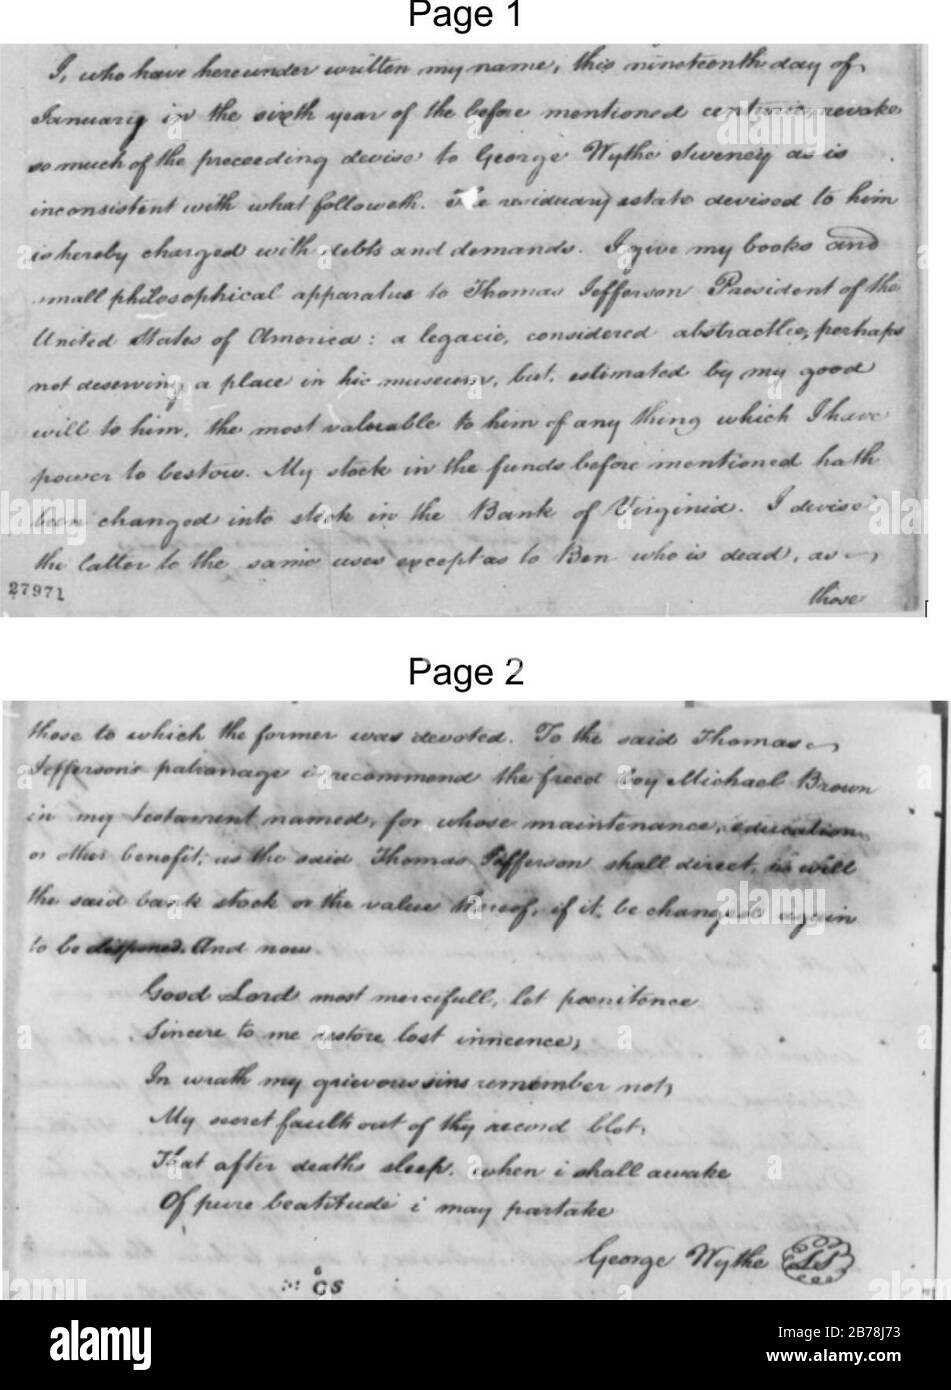 Page 1
I, who have hereunder written my name, this nineteenth day of
January in the sixth year of the before mentioned centurie, revoke
so much of the preceeding devise to George Wythe Sweney as is
inconsistent with what followeth. The residuary estate devised to him
is hereby charged with debts and demands. I give my books and
small philosophical apparatus to Thomas Jefferson President of the
United States of America: a legacie, considered abstractlie, perhaps
not deserving a place in his museum, but, estimated by my good
will to him, the most valuable to him of any thing which I have
power to bestow. My stock in the funds before mentioned hath
been changed into stock in the Bank of Virginia. I devise
the latter to the same uses except as to Ben who is dead, as
those
27971
Page 2
those to which the former was devoted. To the said Thomas
Jefferson's patronage i recommend the freed boy Michael Brown
in my testament named, for whose maintenance, education
or other benefit, as the said Thomas Jefferson shall direct, i will
the said bank stock or the value thereof, if it be changed again
to be disposed. And now
Good Lord most mercifull, let poenitence
Sincere to me restore lost innocence,
In wrath my grievous sins remember not,
My secret faults out of thy record blot,
That after deaths sleep, when i shall awake
Of pure beatitude i may partake
George Wythe LS
CS
alamy
Image ID: 2B78J73
www.alamy.com